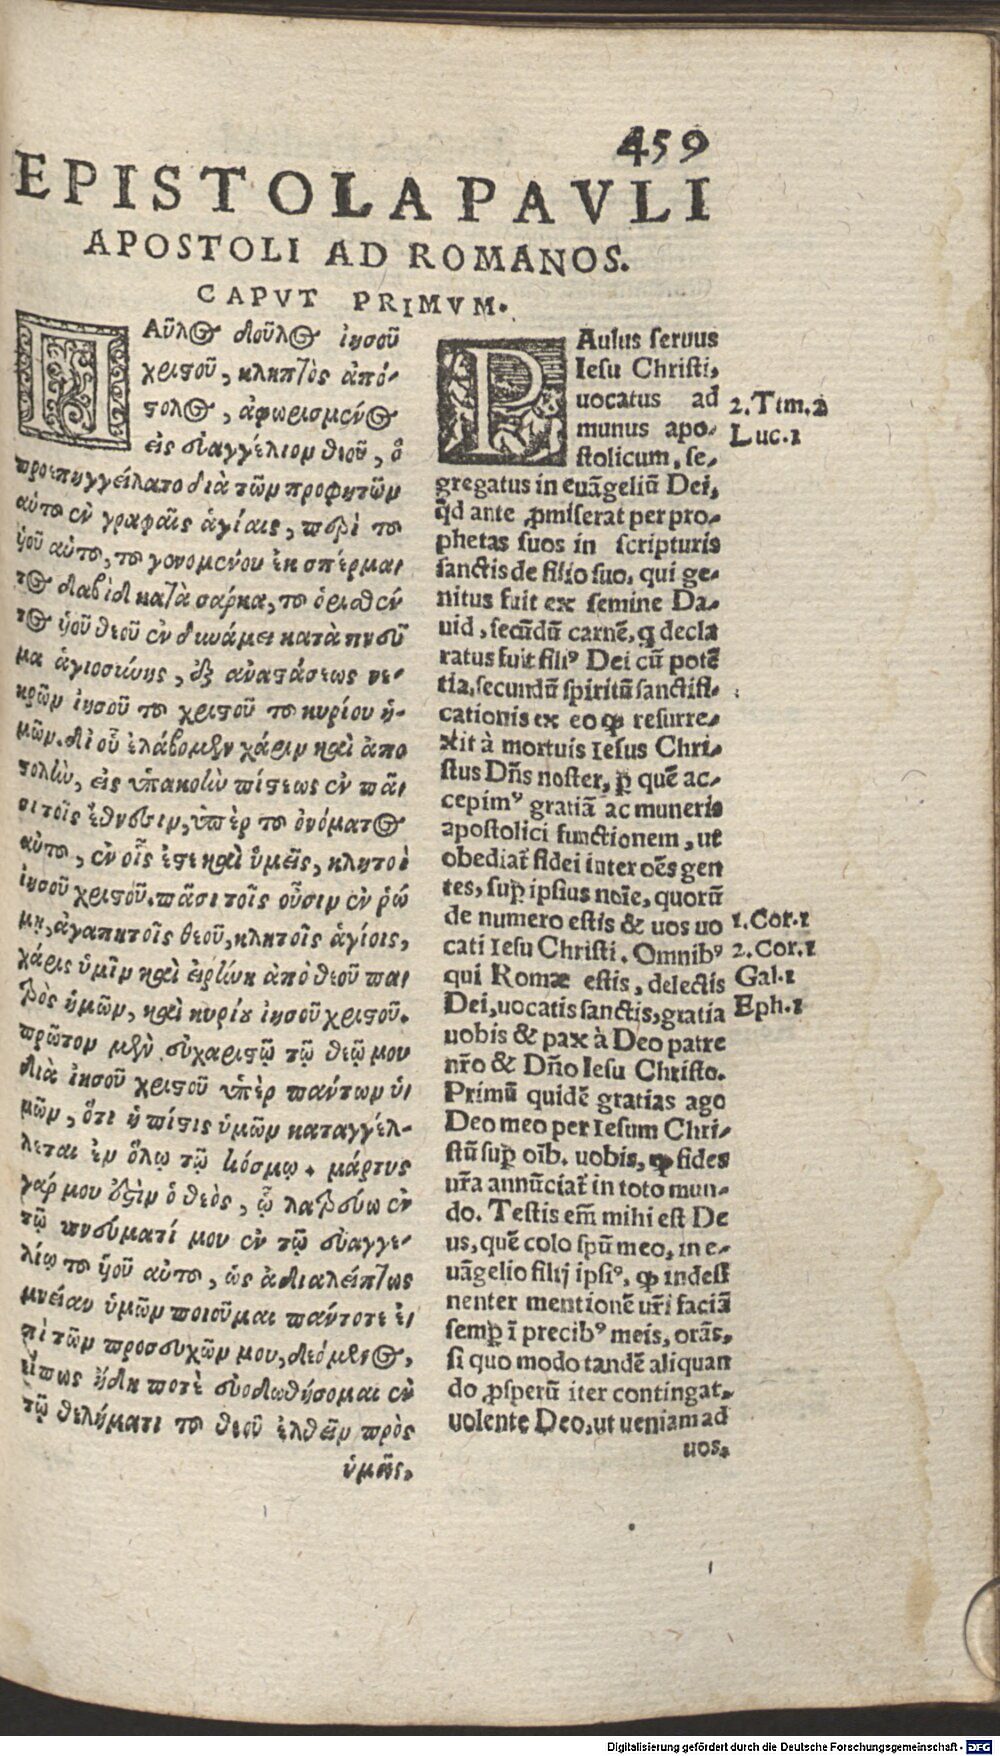 459
EPISTOLA PAVLI
APOSTOLI AD ROMANOS.
CAPVT PRIMVM.
ΠΑῦλος δοῦλος ἰησοῦ
χριστοῦ, κλητὸς ἀπό-
στολος, ἀφωρισμένος
εἰς εὐαγγέλιον θεοῦ, ὃ
προεπηγγείλατο διὰ τῶν προφητῶν
αὐτοῦ ἐν γραφαῖς ἁγίαις, περὶ τοῦ
ὑοῦ αὐτοῦ, τοῦ γονομένου ἐκ σπέρμα-
τος δαβὶδ κατὰ σάρκα, τοῦ ὁρισθέν
τος ὑοῦ θεοῦ ἐν δυνάμει κατὰ πνεῦ
μα ἁγιοσύνης, ἐξ ἀναστάσεως νε-
κρῶν ἰησοῦ τοῦ χριστοῦ τοῦ κυρίου ἡ-
μῶν. δι οὗ ἐλάβομεν χάριν καὶ ἀπο
στολὴν, εἰς ὑπακοὴν πίστεως ἐν πᾶ-
σι τοῖς ἔθνεσιν, ὑπὲρ τοῦ ὀνόματος
αὐτοῦ, ἐν οἷς ἐστε καὶ ὑμεῖς, κλητοὶ
ἰησοῦ χριστοῦ. πᾶσι τοῖς οὖσιν ἐν ῥώ
μῃ, ἀγαπητοῖς θεοῦ, κλητοῖς ἁγίοις,
χάρις ὑμῖν καὶ εἰρήνη ἀπὸ θεοῦ πα-
τρὸς ἡμῶν, καὶ κυρίου ἰησοῦ χριστοῦ.
πρῶτον μὲν εὐχαριστῶ τῷ θεῷ μου
διὰ ἰησοῦ χριστοῦ ὑπὲρ πάντων ὑ-
μῶν, ὅτι ἡ πίστις ὑμῶν καταγγέλ-
λεται ἐν ὅλῳ τῷ κόσμῳ. μάρτυς
γάρ μου ἐστὶν ὁ θεὸς, ᾧ λατρεύω ἐν
τῷ πνεύματί μου ἐν τῷ εὐαγγε-
λίῳ τοῦ ὑοῦ αὐτοῦ, ὡς ἀδιαλείπτως
μνείαν ὑμῶν ποιοῦμαι πάντοτε ἐ-
πὶ τῶν προσευχῶν μου, δεόμενος,
εἴπως ἤδη ποτὲ εὐοδωθήσομαι ἐν
τῷ θελήματι τοῦ θεοῦ ἐλθεῖν πρὸς
ὑμᾶς.
PAulus seruus
Iesu Christi,
uocatus ad
munus apo-
stolicum, se-
gregatus in euãgeliũ Dei,
qd ante ꝓmiserat per pro-
phetas suos in scripturis
sanctis de filio suo, qui ge-
nitus fuit ex semine Da-
uid, secũdũ carnẽ, q decla
ratus fuit filiꝰ Dei cũ potẽ
tia, secundũ spiritũ sanctifi-
cationis ex eo ꝙ resurre-
xit à mortuis Iesus Chri-
stus Dñs noster, ꝑ quẽ ac-
cepimꝰ gratiã ac muneris
apostolici functionem, ut
obediat̃ fidei inter oẽs gen
tes, suꝑ ipsius noĩe, quorũ
de numero estis & uos uo
cati Iesu Christi. Omnibꝰ
qui Romæ estis, delectis
Dei, uocatis sanctis, gratia
uobis & pax à Deo patre
nr̃o & Dño Iesu Christo.
Primũ quidẽ gratias ago
Deo meo per Iesum Chri-
stũ suꝑ oĩb. uobis, ꝙ fides
ur̃a annũciat̃ in toto mun-
do. Testis em̃ mihi est De
us, quẽ colo spũ meo, in e-
uãgelio filij ipsiꝰ, ꝙ indesi
nenter mentionẽ ur̃i faciã
semꝑ ĩ precibꝰ meis, orãs,
si quo modo tandẽ aliquan
do ꝓsperũ iter contingat,
uolente Deo, ut ueniam ad
uos,
2.Tim.2
Luc.1
1.Cor.1
2.Cor.1
Gal.1
Eph.1
Digitalisierung gefördert durch die Deutsche Forschungsgemeinschaft - DFG